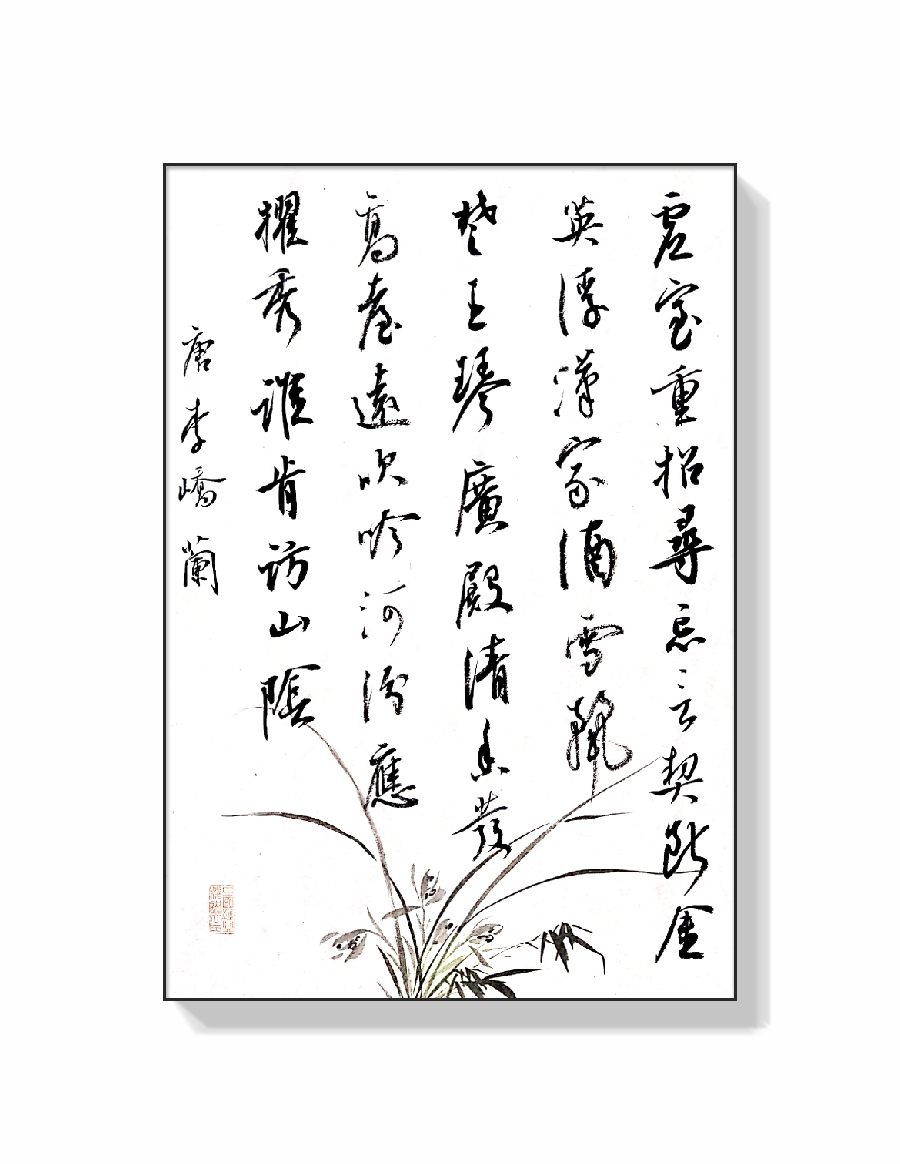 虛室重招尋忘言契斷金
英浮漢家酒雪
楚王琴廣殿清香發
高臺遠吹吟河汾應
擢秀誰肯訪山陰
唐李嶠蘭